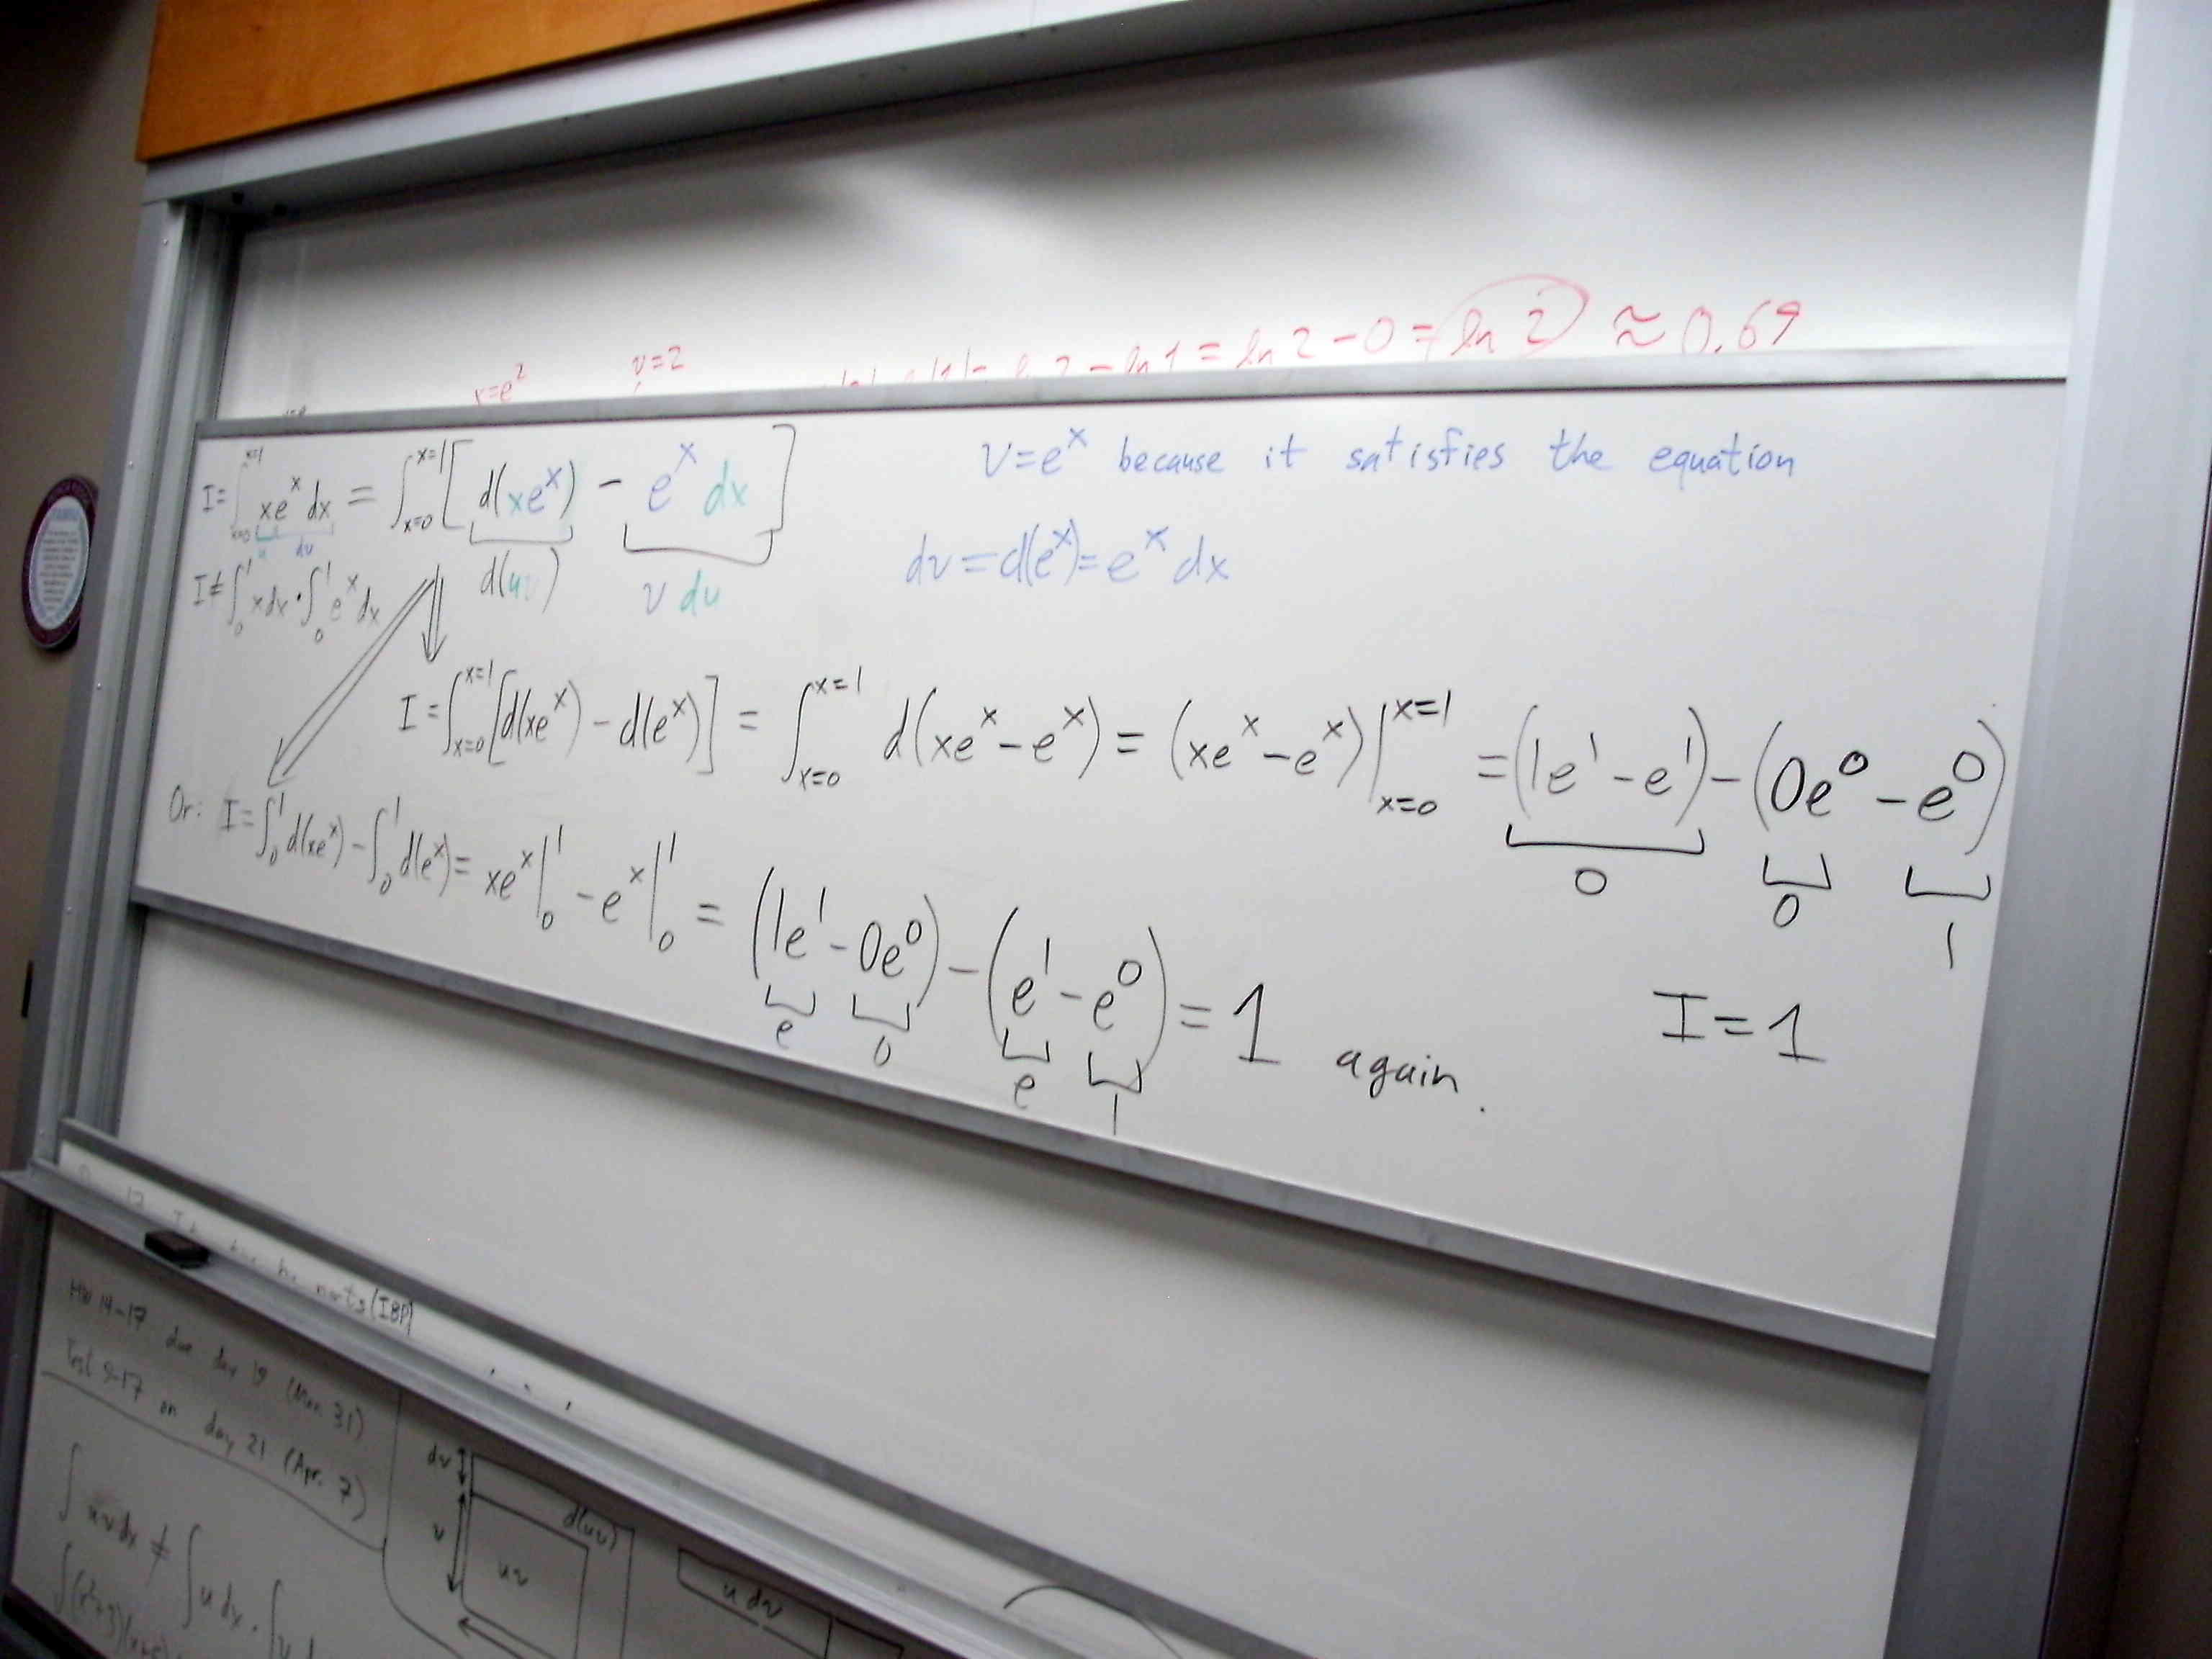 x=e² v=2 ln 2 - ln 1 = ln 2 - 0 = ln 2 ≈ 0.69
I = ∫_{x=0}^{x=1} xe^x dx = ∫_{x=0}^{x=1} [d(xe^x) - e^x dx]
u dv d(uv) v du
I ≠ ∫_0^1 x dx · ∫_0^1 e^x dx
v = e^x because it satisfies the equation
dv = d(e^x) = e^x dx
I = ∫_{x=0}^{x=1} [d(xe^x) - d(e^x)] = ∫_{x=0}^{x=1} d(xe^x - e^x) = (xe^x - e^x)|_{x=0}^{x=1} = (1e^1 - e^1) - (0e^0 - e^0)
0 0 1
I = 1
Or: I = ∫_0^1 d(xe^x) - ∫_0^1 d(e^x) = xe^x|_0^1 - e^x|_0^1 = (1e^1 - 0e^0) - (e^1 - e^0) = 1 again.
e 0 e 1
parts (IBP)
HW 14-17 due day 19 (Mon 31)
Test 9-17 on day 21 (Apr. 7)
∫ uv dx ≠ ∫ u dx · ∫
dv
v
d(uv)
uv
u dv